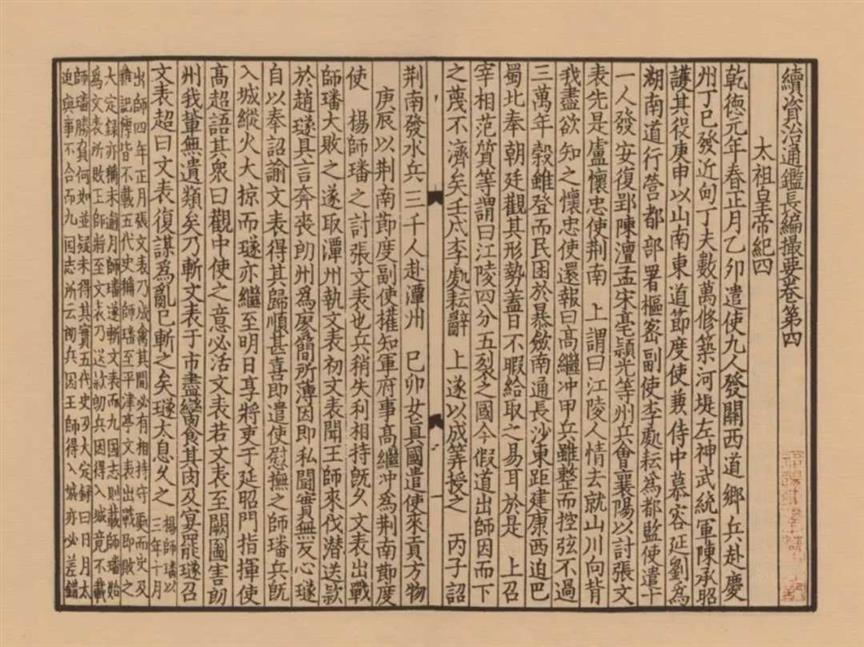 續資治通鑑長編撮要卷第四
太祖皇帝紀四
乾德元年春正月乙卯遣使九人發關西道鄉兵赴慶
州丁巳發近甸丁夫數萬修築河堤左神武統軍陳承昭
護其役庚申以山南東道節度使兼侍中慕容延釗為
湖南道行營都部署樞密副使李處耘為都監使遣十
一人發安復郢陳澶孟宋亳潁光等州兵會襄陽以討張文
表先是盧懷忠使荆南 上謂曰江陵人情去就山川向背
我盡欲知之懷忠使還報曰高繼冲甲兵雖整而控弦不過
三萬年穀雖登而民困於暴斂南通長沙東距建康西迫巴
蜀北奉朝廷觀其形勢蓋日不暇給取之易耳於是 上召
宰相范質等謂曰江陵四分五裂之國今假道出師因而下
之蔑不濟矣壬戌李處耘辭 上遂以成筭授之 丙子詔
荆南發水兵三千人赴潭州 己卯女真國遣使來貢方物
庚辰以荆南節度副使權知軍府事高繼冲為荆南節度
使 楊師璠之討張文表也兵稍失利相持旣久文表出戰
師璠大敗之遂取潭州執文表初文表聞王師來伐潛送款
於趙璲具言奔喪朗州為廖簡所薄因即私鬭實無反心璲
自以奉詔諭文表得其歸順甚喜即遣使慰撫之師璠兵旣
入城縱火大掠而璲亦繼至明日享將吏于延昭門指揮使
高超語其衆曰觀中使之意必活文表若文表至闕圖害朗
州我輩無遺類矣乃斬文表于市盡臠食其肉及宴罷璲召
文表超曰文表復謀為亂已斬之矣璲太息久之 楊師璠以
三年十月
出師四年正月張文表乃成禽其間必有相持守 而史及
雜記傳皆不載五代史稱師璠至平津亭文表出戰即敗之
大定錄亦稱未逾月師璠遂斬文表而九國志則載師璠始
為文表所敗王師將至文表乃送款朗兵因得入城竟不載
師璠勝負何如並疑未得其實五代史乃大定錄曰日月太
迫與事不合而九國志所云朗兵因王師得入城亦必差錯